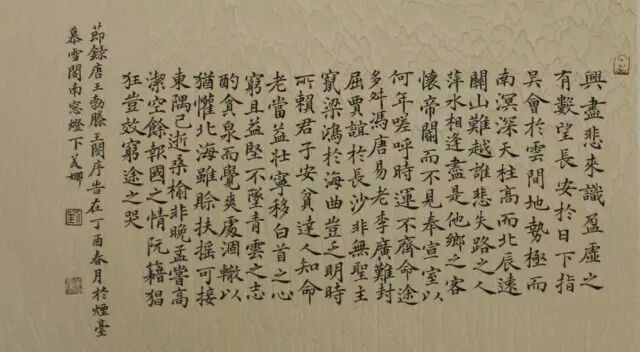 興盡悲來識盈虛之
有數望長安於日下指
吳會於雲間地勢極而
南溟深天柱高而北辰遠
關山難越誰悲失路之人
萍水相逢盡是他鄉之客
懷帝閽而不見奉宣室以
何年嗟呼時運不齊命途
多舛馮唐易老李廣難封
屈賈誼於長沙非無聖主
竄梁鴻於海曲豈乏明時
所賴君子安貧達人知命
老當益壯寧移白首之心
窮且益堅不墜青雲之志
酌貪泉而覺爽處涸轍以
猶懽北海雖賒扶搖可接
東隅已逝桑榆非晚孟嘗高
潔空餘報國之情阮籍猖
狂豈效窮途之哭
節錄唐王勃滕王閣序旹在丁酉春月於煙臺
慕雪閣南窓燈下美娜